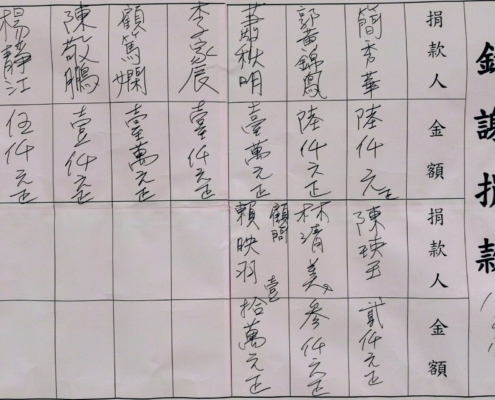 銘謝捐款
捐款人
簡秀華
郭黃錦鳳
秋明
李家辰
顧篤嫻
陳敬鵬
楊靜江
金額
陸仟元正
陸仟元正
壹萬元正
壹仟元正
壹萬元正
壹仟元正
伍仟元正
捐款人
陳瑛玉
林清美
顧問
賴映羽
金額
貳仟元正
參仟元正
壹拾萬元正